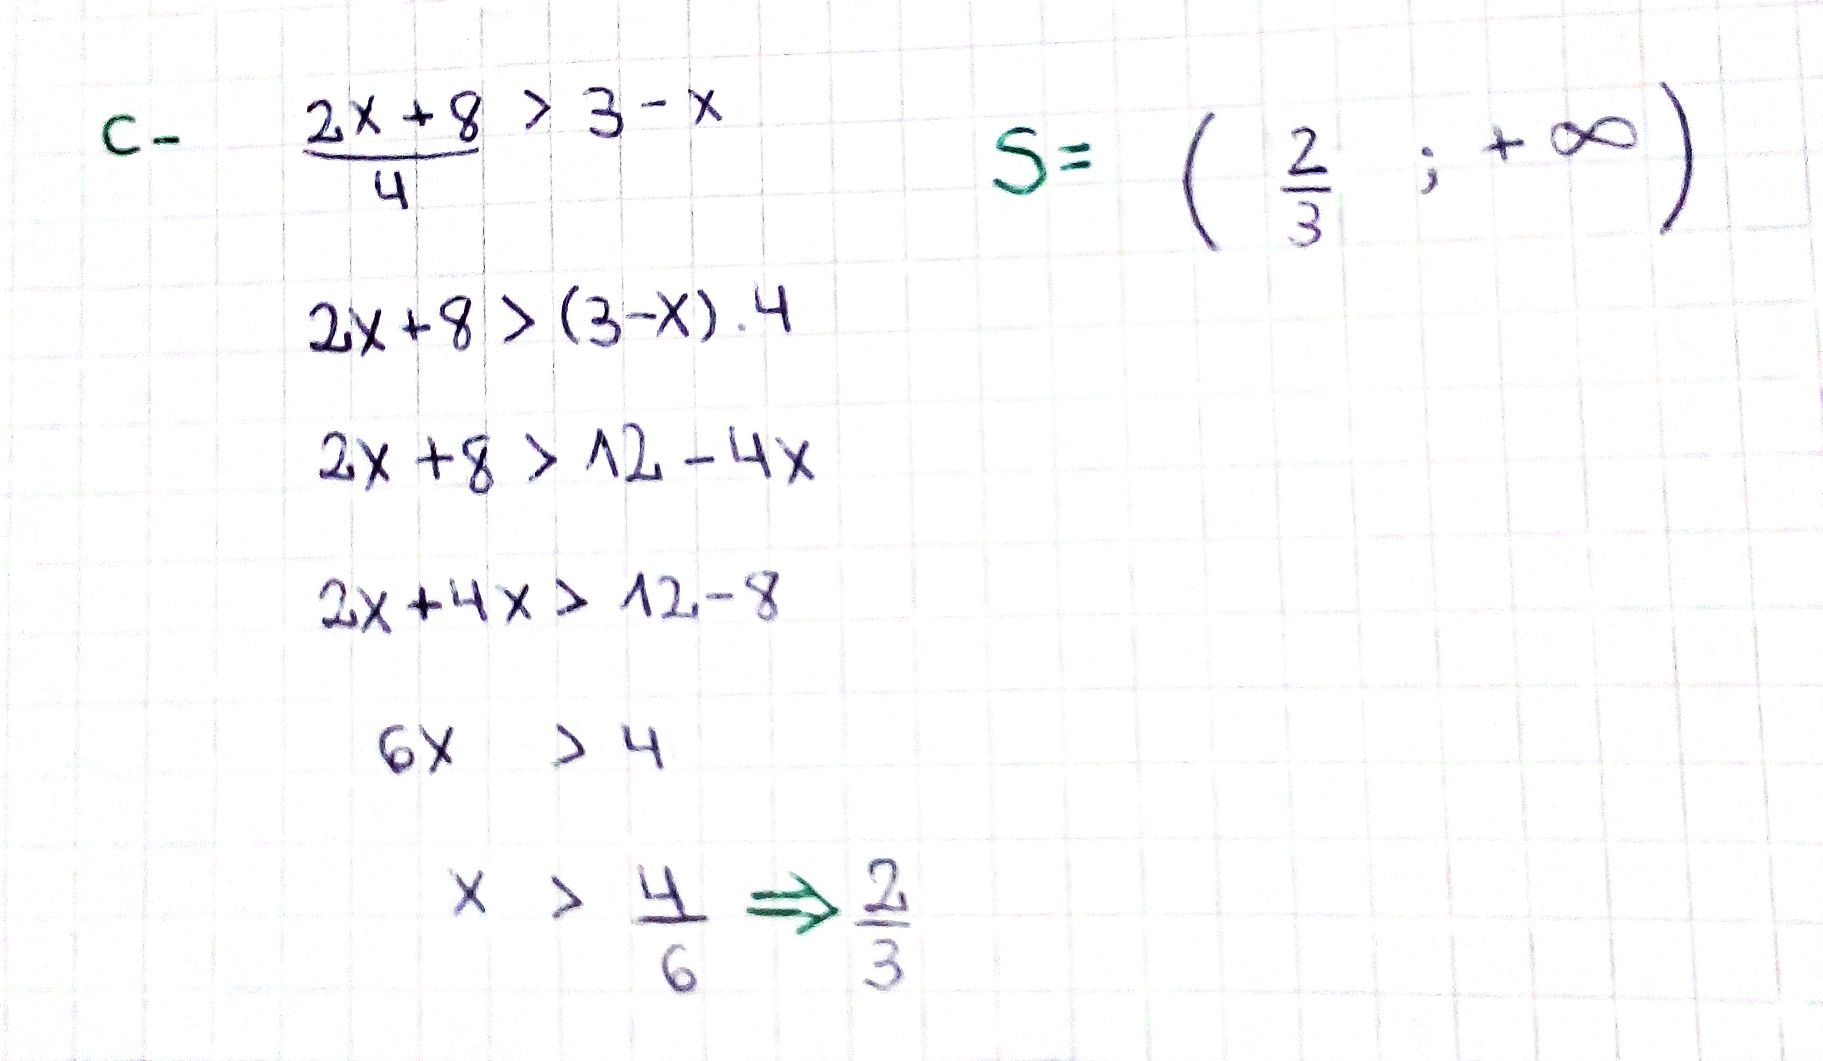 C- (2x+8)/4 > 3-x
S= (2/3 ; +∞)
2x+8 > (3-x).4
2x+8 > 12-4x
2x+4x > 12-8
6x > 4
x > 4/6 ⇒ 2/3